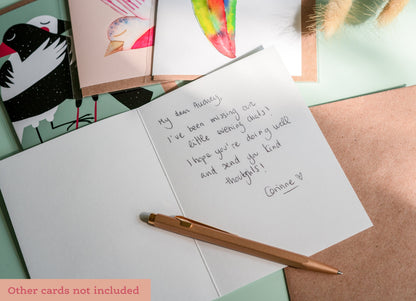 My dear Audrey,
I've been missing our
little evening chats!
I hope you're doing well
and send you kind
thoughts!
Corinne ♡
Other cards not included